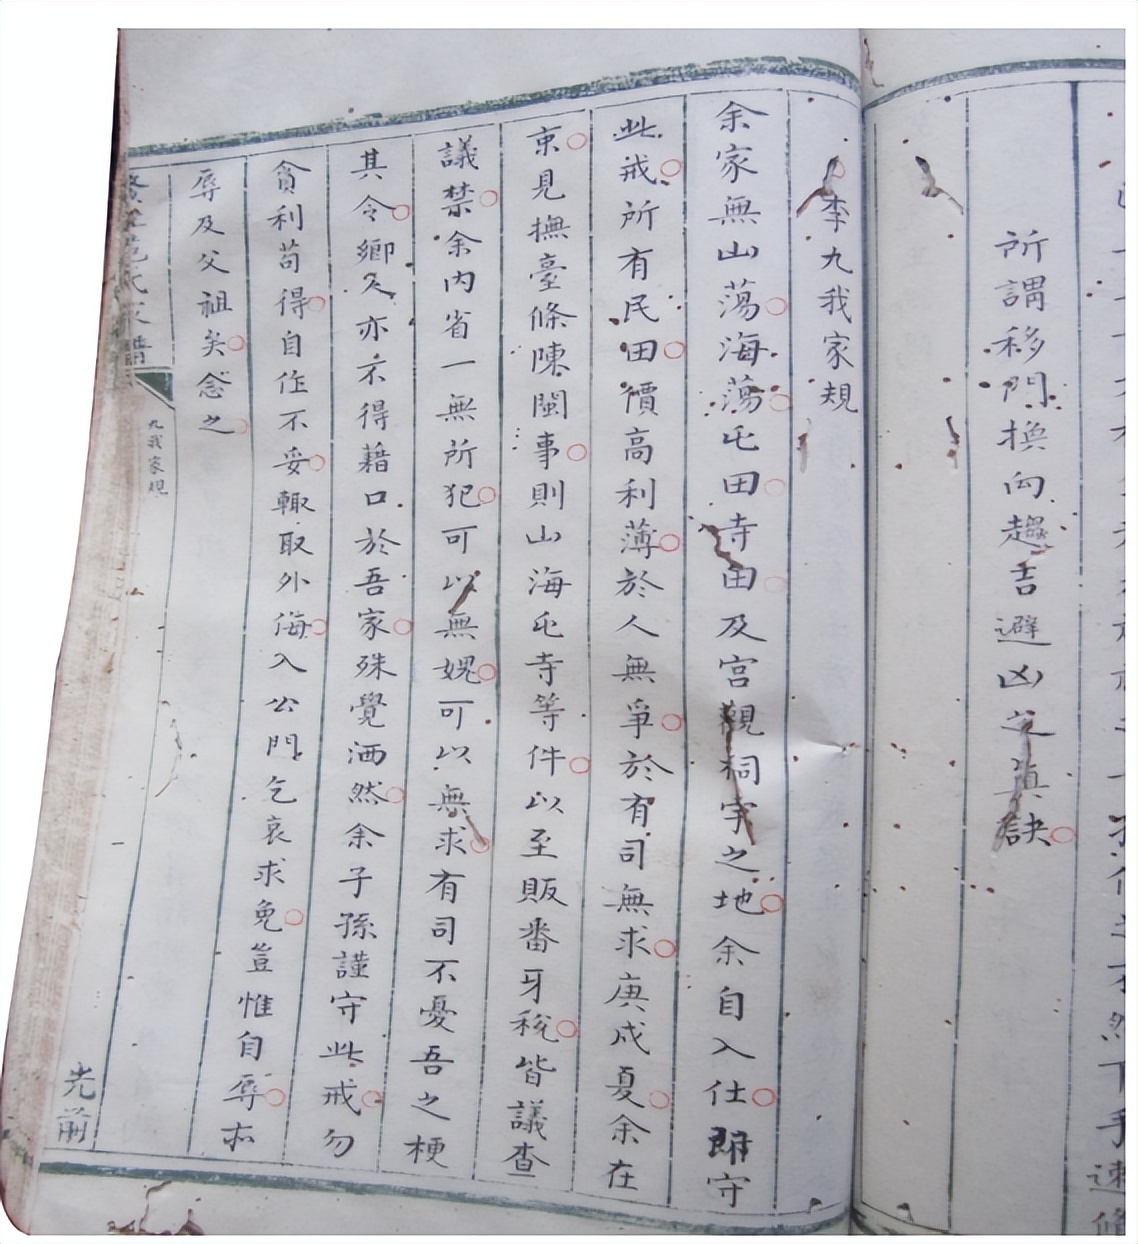 所謂移門換向趨吉避凶之真訣
李九我家規
余家無山蕩海蕩屯田寺田及宮觀祠宇之地余自入仕即守
此戒所有民田價高利薄於人無爭於有司無求庚戌夏余在
京見撫臺條陳閩事則山海屯寺等件以至販番牙稅皆議查
議禁余內省一無所犯可以無媿可以無求有司不憂吾之梗
其令鄉人亦不得藉口於吾家殊覺洒然余子孫謹守此戒勿
貪利苟得自作不妥輙取外侮入公門乞哀求免豈惟自辱亦
辱及父祖矣念之
九我家規
光前